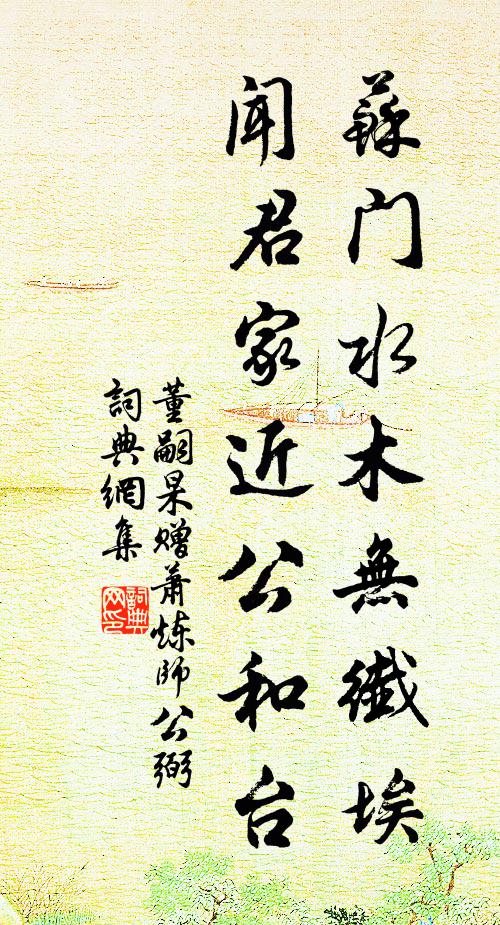 蘇门水木無纖埃
闻君家近公和台
董嗣杲赠萧炼师公弼
詞典網集
詞典网印